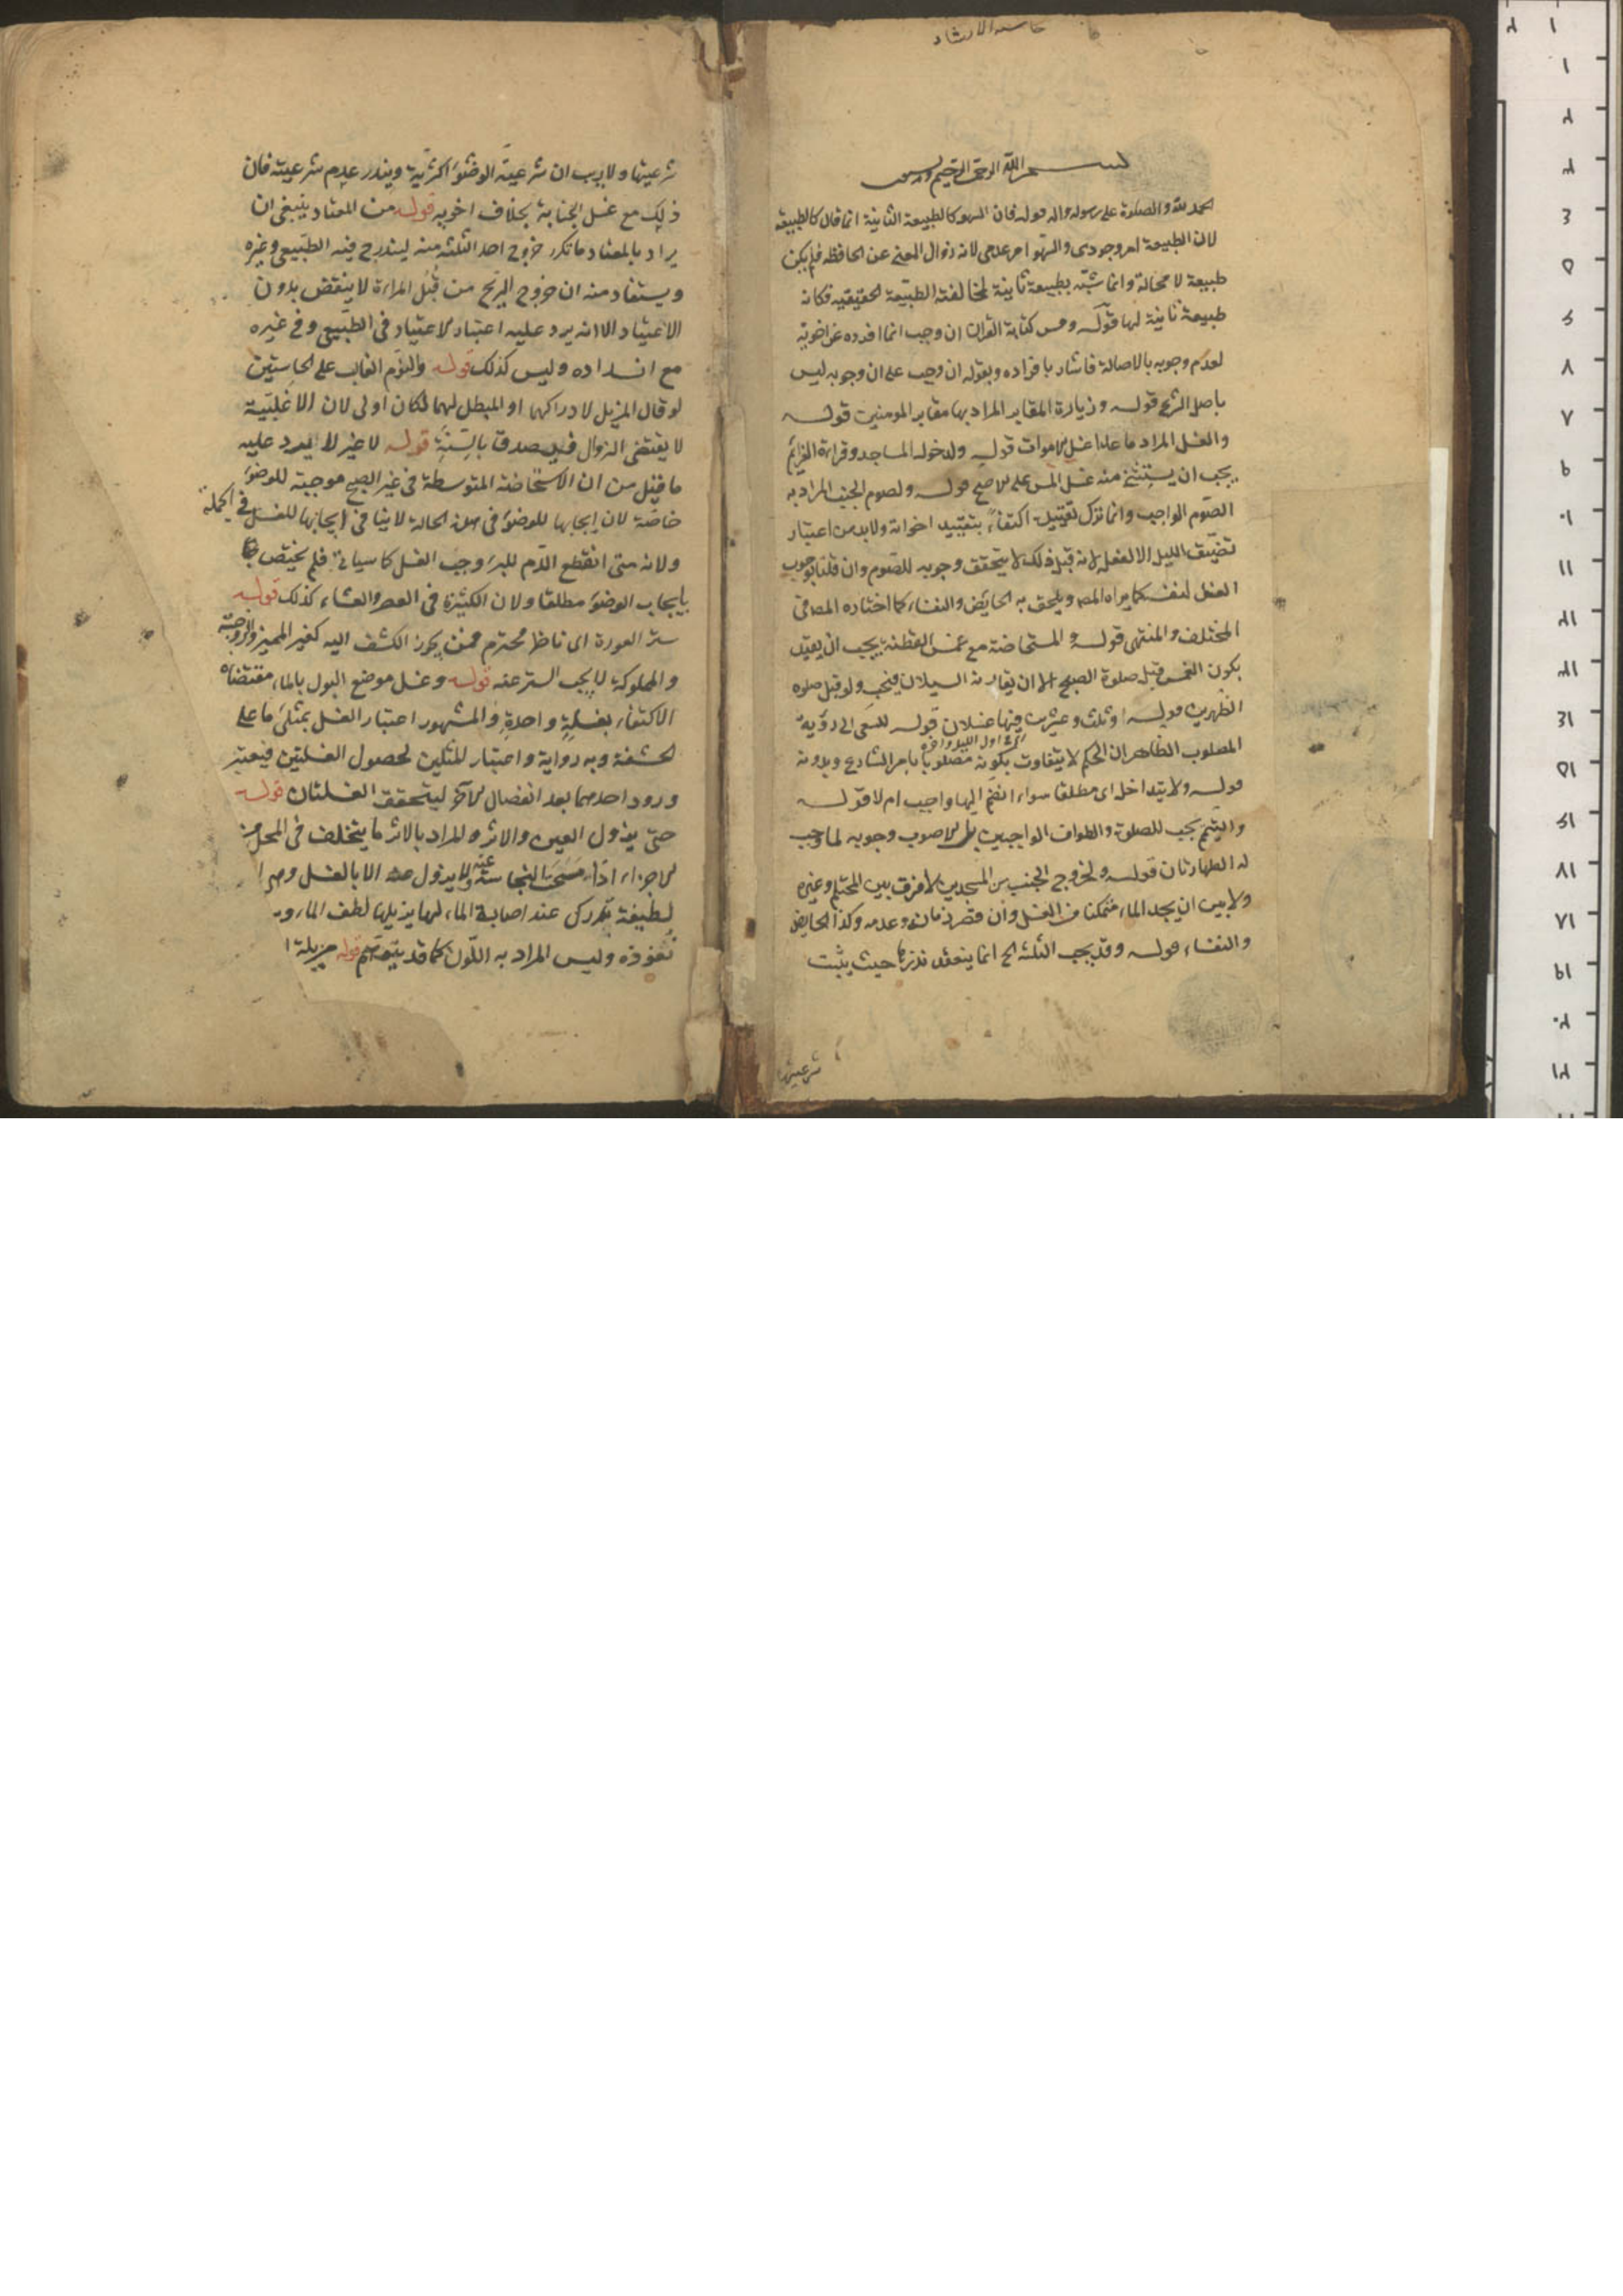 حاشیه الارشاد
بسم الله الرحمن الرحيم وبه نستعين
الحمد لله والصلوة على رسوله واله قوله فان السهو كالطبيعة الثانية انما قال كالطبيعة
لان الطبيعة امر وجودى والسهو امر عدمى لانه زوال المعنى عن الحافظة فلم يكن
طبيعة لا محالة وانما شبّه بطبيعة ثانية لمخالفته الطبيعة الحقيقيه فكانه
طبيعة ثانية لها قوله ومس كتابة القران ان وجب انما افرده عن اخويه
لعدم وجوبه بالاصالة فاشار بافراده وبقوله ان وجب على ان وجوبه ليس
باصل الشرع قوله وزيارة المقابر المراد بها مقابر المومنين قوله
والغسل المراد ما عدا غسل الاموات قوله ولدخول المساجد وقراءة العزائم
يجب ان يستثنى منه غسل المس على الاصح قوله ولصوم الجنب المراد به
الصوم الواجب وانما ترك تقييده اكتفاء بتقييد اخواته ولابد من اعتبار
تضيّق الليل الا لفعله لانه قبل ذلك لا يتحقق وجوبه للصوم وان قلنا بوجوب
الغسل لنفسه كما يراه المصـ ويلحق به الحائض والنفساء كما اختاره المصـ فى
المختلف والمنتهى قوله والمستحاضة مع غمس القطنة يجب ان يقيّد
بكون الغمس قبل صلوة الصبح الا ان يقارنه السيلان فيجب ولو قبل صلوة
الظهرين قوله او ثلث وعشرين فيها غسلان قوله للسعى الى رؤية
اى اول الليل واخره
المصلوب الظاهر ان الحكم لا يتفاوت بكونه مصلوبا بامر الشارع وبدونه
قوله ولا يتداخل اى مطلقا سواء انضم اليها واجب ام لا قوله
والتيمم يجب للصلوة والطواف الواجبين بل الاصوب وجوبه لما وجب
له الطهارتان قوله ولخروج الجنب من المسجدين لا فرق بين المحتلم وغيره
ولا بين ان يجد الماء متمكنا من الغسل وان قصر زمانه وعدمه وكذا الحايض
والنفساء قوله وقد يجب الثلثة الخ انما ينعقد نذرها حيث يثبت
شرعيتها
شرعيتها ولا ريب ان شرعية الوضوء اكثرية ويندر عدم شرعيته فان
ذلك مع غسل الجنابة بخلاف اخويه قوله من المعتاد ينبغى ان
يراد بالمعتاد ما تكرر خروج احد الثلثة منه ليندرج فيه الطبيعى وغيره
ويستفاد منه ان خروج الريح من قبل المراة لا ينقض بدون
الاعتياد الا انه يرد عليه اعتبار الاعتياد فى الطبيعى وفى غيره
مع انسداده وليس كذلك قوله والنوم الغالب على الحاستين
لو قال المزيل لادراكهما او المبطل لهما لكان اولى لان الاغلبية
لا يقتضى الزوال فيصدق بالسنة قوله لا غير لا يرد عليه
ما قيل من ان الاستحاضة المتوسطة فى غير الصبح موجبة للوضوء
خاصة لان ايجابها للوضوء فى هذه الحالة لا ينافى ايجابها للغسل فى الجملة
ولانه متى انقطع الدم للبرء وجب الغسل كما سيأتى فلم يختص
بايجاب الوضوء مطلقا ولان الكثيرة فى العصر والعشاء كذلك قوله
ستر العورة اى ناظر محترم فمن يجوز الكشف اليه كغير المميز والزوجة
والمملوكة لا يجب الستر عنه قوله وغسل موضع البول بالماء مقتضاه
الاكتفاء بغسلة واحدة والمشهور اعتبار الغسل بمثلى ما على
الحشفة وبه رواية واعتبار المثلين لحصول الغسلتين فيعتبر
ورود احدهما بعد انفصال الاخر ليتحقق الغسلتان قوله
حتى يزول العين والاثر والمراد بالاثر ما يتخلف فى المحل من
الاجزاء اذا مسحت النجاسة عنه ولا يزول عنه الا بالغسل
لطيفة تدرك عند اصابة الماء لها يزيلها لطف الماء و
نفوذه وليس المراد به اللون كما قد يتوهم قوله مزيلة